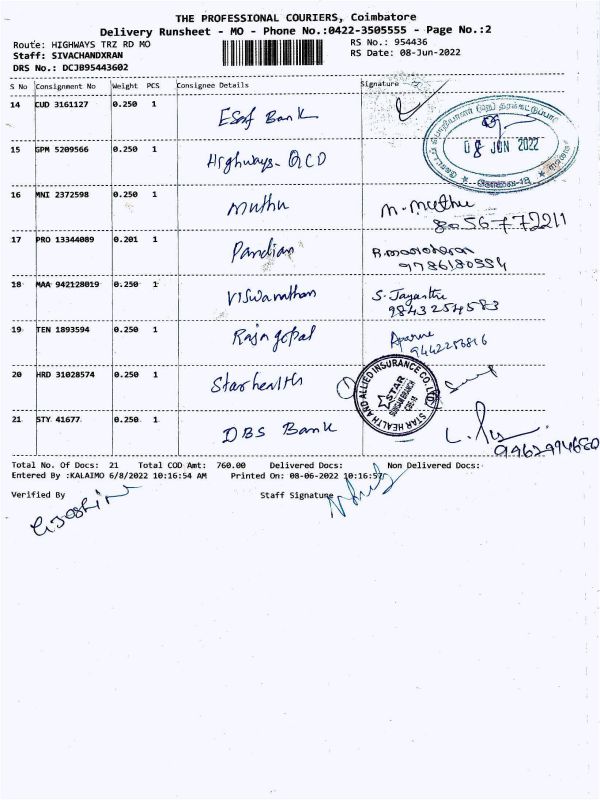 THE PROFESSIONAL COURIERS, Coimbatore
Delivery Runsheet - MO - Phone No.:0422-3505555 - Page No.:2
Route: HIGHWAYS TRZ RD MO RS No.: 954436
Staff: SIVACHANDXRAN RS Date: 08-Jun-2022
DRS No.: DCJB95443602
S No Consignment No Weight PCS Consignee Details Signature
14 CUD 3161127 0.250 1 Esaf Bank
08 JUN 2022
15 GPM 5209566 0.250 1 Highways-QCD
16 MNI 2372598 0.250 1 Muthu M. Muthu
8056772211
17 PRO 13344089 0.201 1 Pandian
9786180554
18 MAA 942128019 0.250 1 Viswanathan S. Jayanthi
9843254583
19 TEN 1893594 0.250 1 Rajagopal
20 HRD 31028574 0.250 1 Star health
STAR HEALTH AND ALLIED INSURANCE CO. LTD.
STAR
21 STY 41677 0.250 1 DBS Bank
9962994680
Total No. Of Docs: 21 Total COD Amt: 760.00 Delivered Docs: Non Delivered Docs:
Entered By :KALAIMO 6/8/2022 10:16:54 AM Printed On: 08-06-2022 10:16:57
Verified By Staff Signature